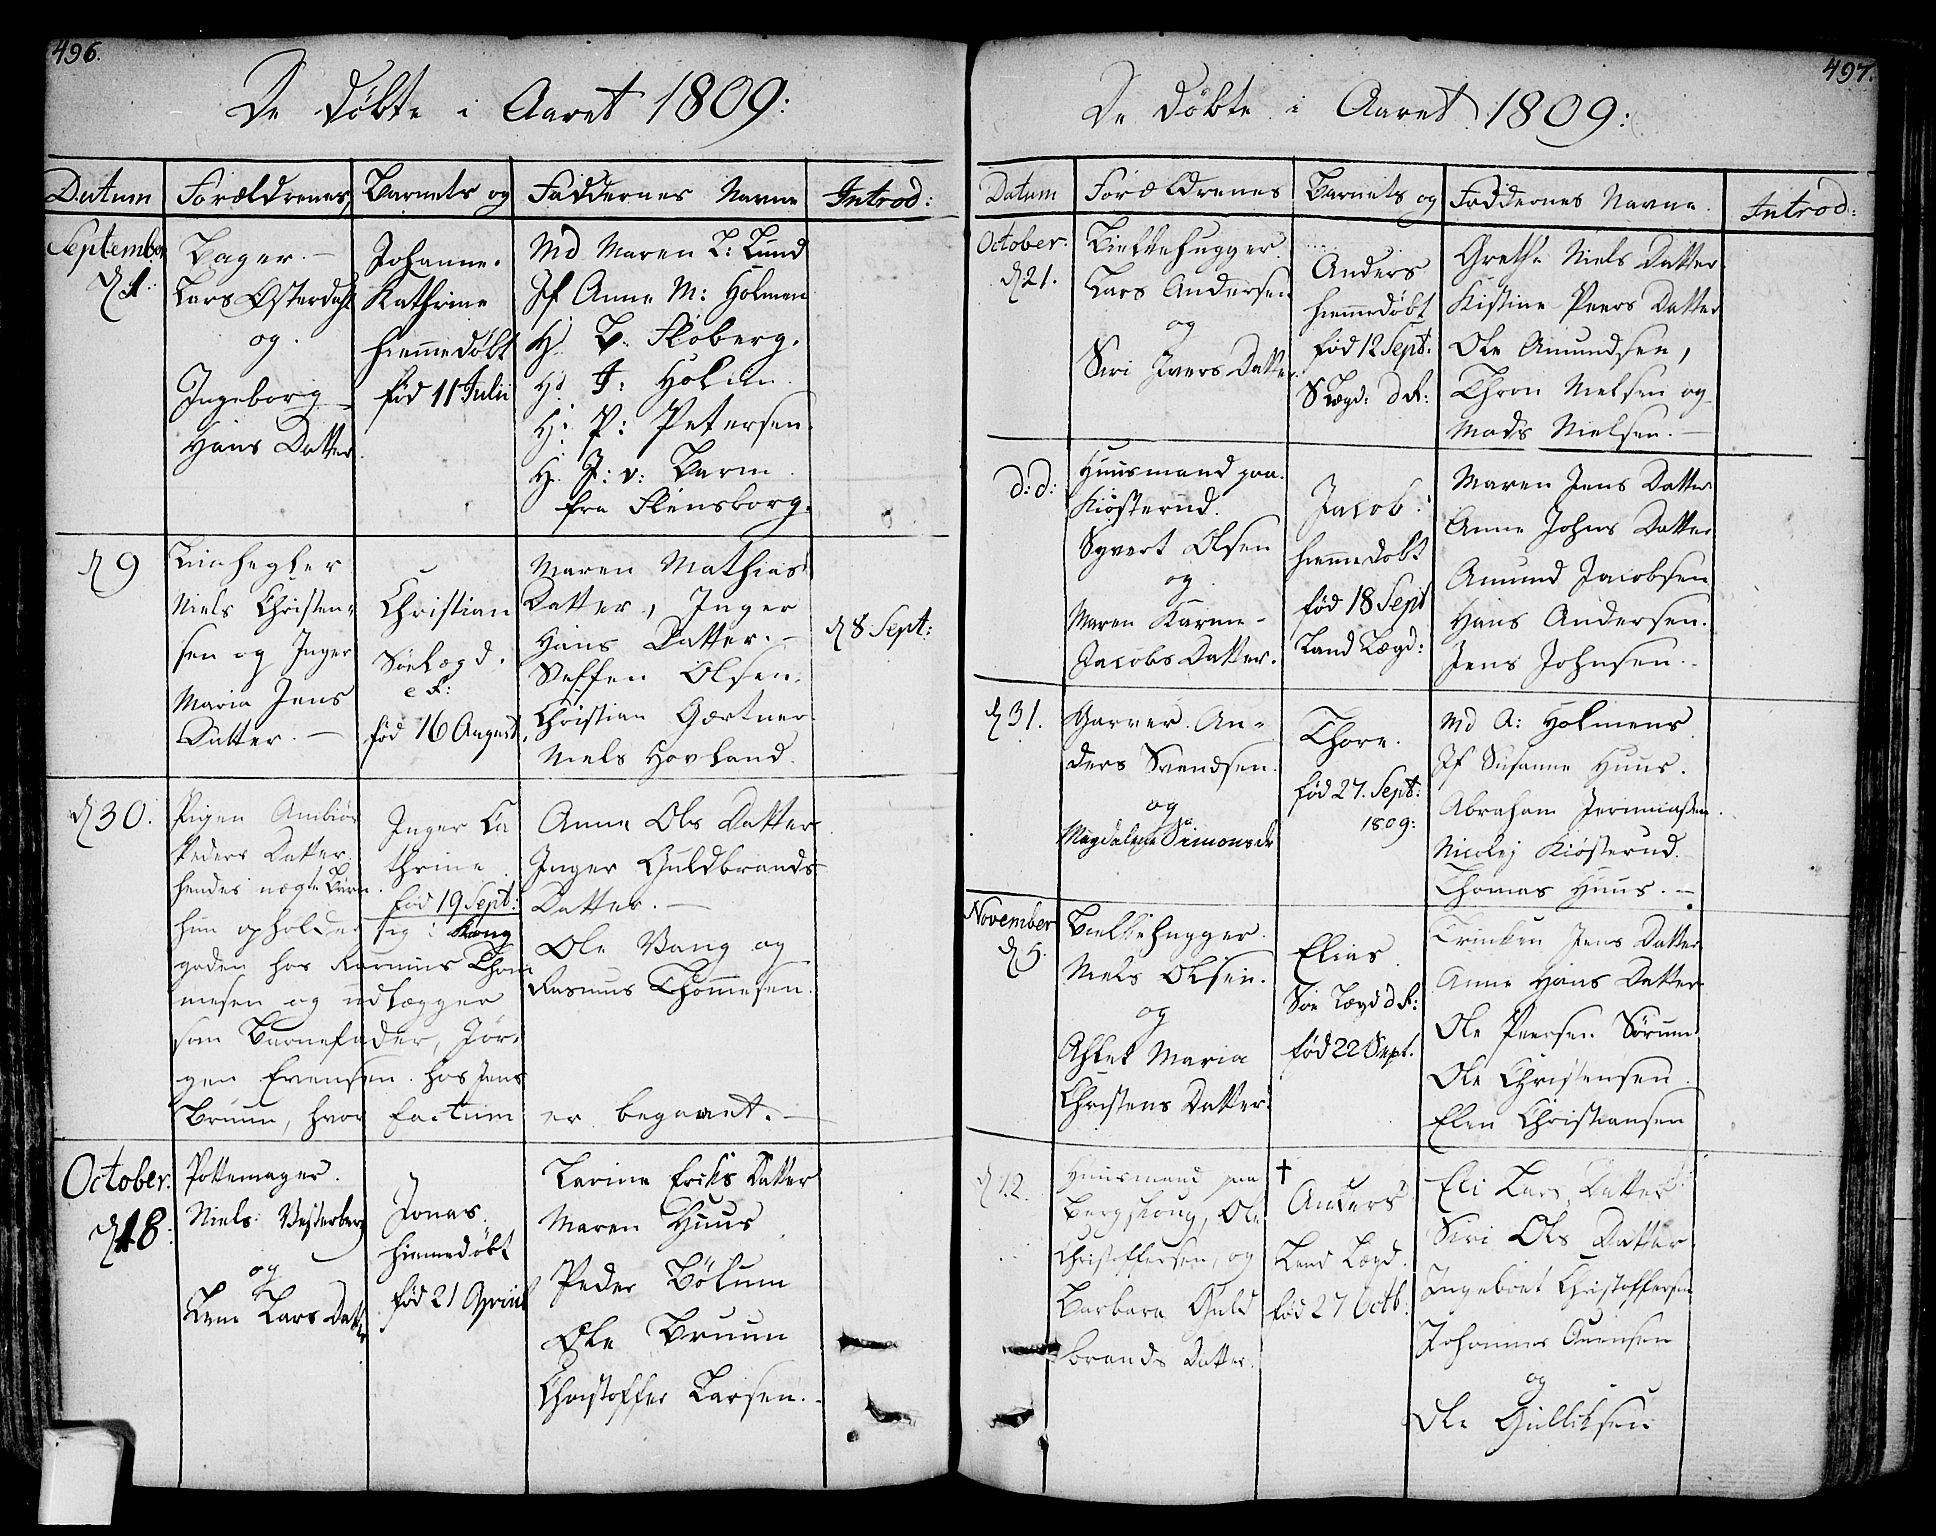 496.
De Døbte i Aaret 1809:
Datum
Forældrenes,
Barnets og
Faddernes Navne
Introd:
September
d 1.
Bager.
Lars Østerdahl
og.
Ingeborg
Hans Datter
Johanne.
Kathrine
hiemmedøbt
fød 11 Julii
Md Maren L: Lund
Jf Anne M: Holmen
Hr B. Skoberg.
Hr J: Holm
Hr P: Petersen.
Hr J: v: Barm
fra Flensborg.
d 9
Niels Christen-
sen og Inger
Maria Jens
Datter.
Christian
Søe Lægd.
e F:
fød 16 August
Maren Mathias
Datter, Inger
Hans Datter.
Steffen Olsen.
Christian Gærtner
Niels Hovland.
d 8 Sept:
d 30.
Pigen Ambiør
Peders Datter
hendes uægte Barn.
hun opholder sig i Kong
gaden hos Rasmus Thom
mesen og udlægger
som Barnefader, Jør-
gen Evensen hos Jens
Bruun, hvor factum er begaaet.
Inger Ca
thrine
fød 19 Sept:
Anne Ols Datter
Inger Guldbrands
Datter.
Ole Vang og
Rasmus Thommesen.
October.
d 18:
Pottemager.
Niels Vesterberg
og
Lene Lars Datter
Jonas.
hiemmedøbt
fød 21 Apriil
Karine Eriks Datter
Maren Huus
Peder Bølum
Ole Bruun
Christoffer Larsen.
497.
De Døbte i Aaret 1809:
Datum
Forældrenes
Barnets og
Faddernes Navne.
Introd:
October.
d 21.
Bielkehugger.
Lars Andersen
og
Siri Ivers Datter
Anders
hiemmedøbt
fød 12 Sept:
S Lægd: d F:
Grethe Niels Datter
Kistine Peers Datter
Ole Amundsen,
Thron Nielsen og
Mads Nielsen.
d: d:
Huusmand paa
Kiøsterud.
Syvert Olsen
og
Maren Karine
Jacobs Datter.
Jacob:
hiemmedøbt
fød 18 Sept
Land Lægd:
Maren Jens Datter
Anne Johns Datter
Amund Jacobsen
Hans Andersen.
Jens Johnsen.
d 31.
Garver. An-
ders Svendsen.
og
Magdalene Simonsdr
Thore.
fød 27. Sept:
1809:
Md A: Holmens
Jf Susanne Huus.
Abraham Jeremiassen
Nicolej Kiøsterud.
Thomas Huus.
November
d 5.
Bielkehugger.
Niels Olsen.
og
Ahlet Maria
Christens Datter.
Elias.
Søe Lægd d F:
fød 22 Sept.
Trinken Jens Datter
Anne Hans Datter
Ole Peersen Sørum
Ole Christensen
Elen Christiansen
d 12.
Huusmand paa
Bergskoug, Ole
Christoffersen, og
Barbara Guld
brands Datter.
†
Anders
Land Lægd.
fød 27 Octb.
Eli Lars Datter
Siri Ols Datter
Ingebret Christoffersen
Johannes
og
Ole Gulliksen